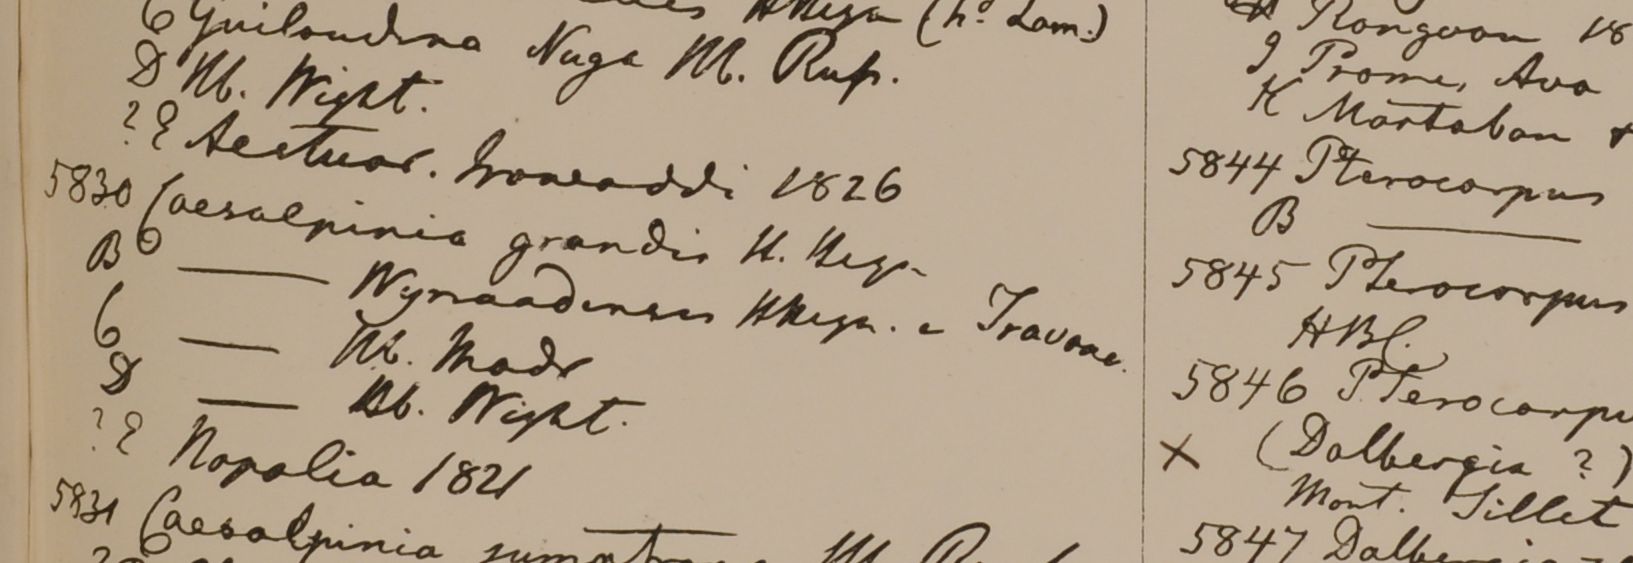 (h. Lam.)
C Guilandina Nuga M. Rup.
D Hb. Wight.
? E Aestuar. Irowaddi 1826
5830 Caesalpinia grandis H. Heyn
B ——— Wynaadensis HHeyn. e Travanc.
C —— Hb. Madr
D —— Hb. Wight.
? E Napalia 1821
5831 Caesalpinia
H Rongoon 18
J Prome, Ava
K Martaban
5844 Pterocarpus
B ———
5845 Pterocarpus
HBC.
5846 Pterocarpu
× (Dalbergia ?)
Mont. Sillet
5847 Dalbergia